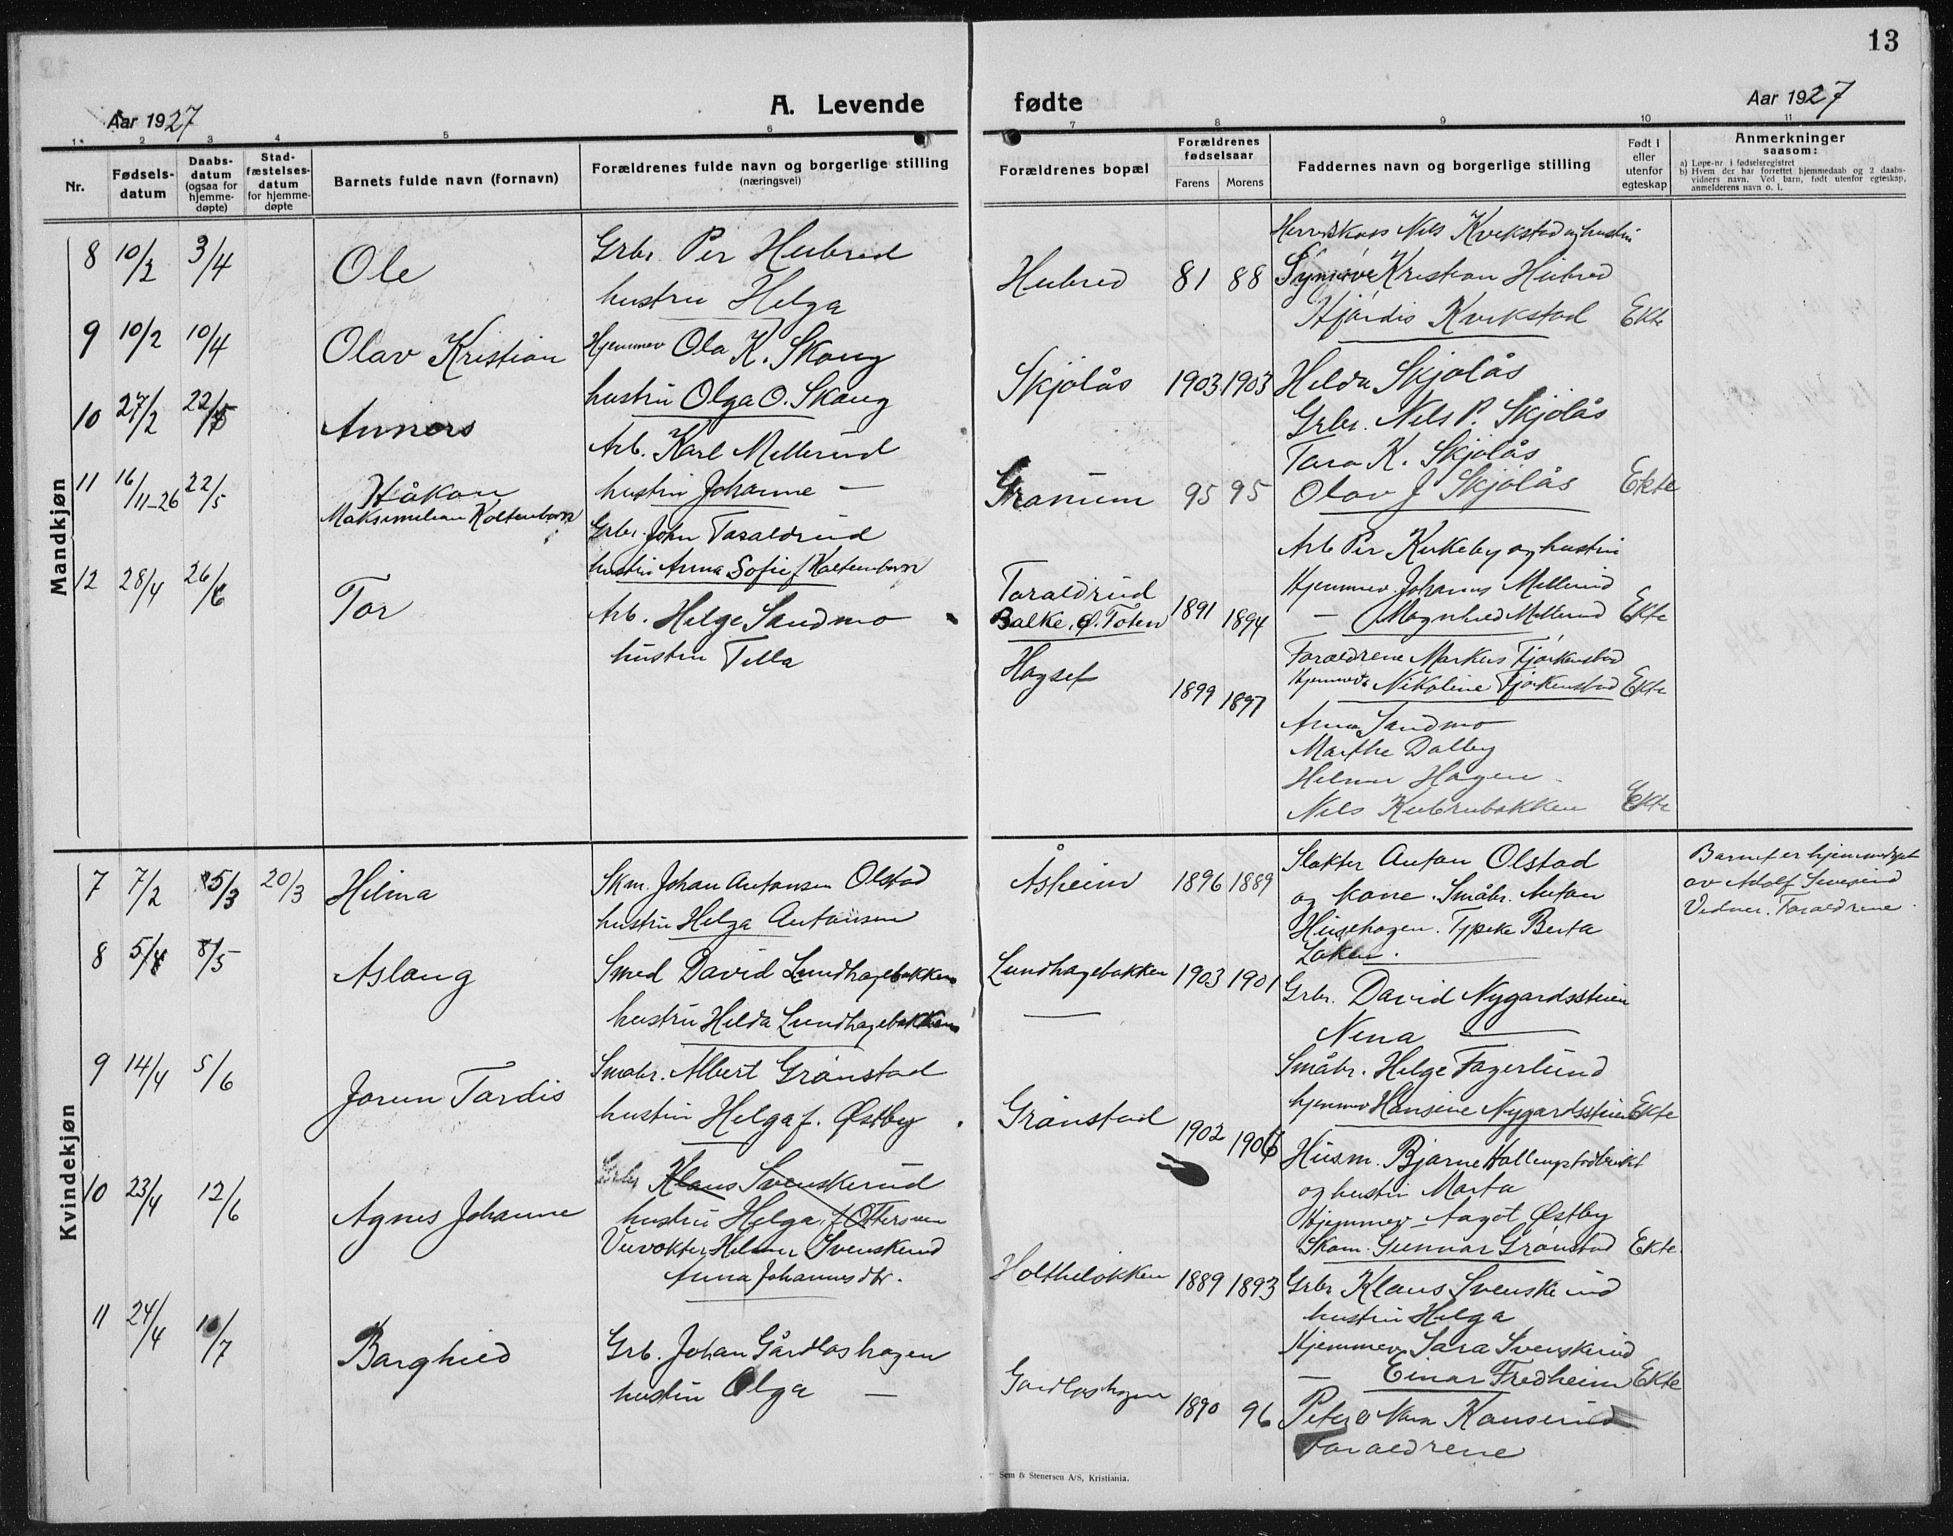 13
Aar 1927
A. Levende fødte
Aar 1927
1 2 3 4 5 6 7 8 9 10 11
Nr.
Fødsels-
datum
Daabs-
datum
(ogsaa for
hjemme-
døpte)
Stad-
fæstelses-
datum
for hjemme-
døpte
Barnets fulde navn (fornavn)
Forældrenes fulde navn og borgerlige stilling
(næringsvei)
Forældrenes bopæl
Forældrenes
fødselsaar
Farens Morens
Faddernes navn og borgerlige stilling
Født i
eller
utenfor
egteskap
Anmerkninger
saasom:
a) Løpe-nr. i fødselsregistret
b) Hvem der har forrettet hjemmedaab og 2 daabs-
vidners navn. Ved barn, født utenfor egteskap,
anmelderens navn o. l.
Mandkjøn
8 10/2 3/4 Ole
Grbr. Per Hubred
hustru Helga
Hubred 81 88
Nils Kvikstad og hustru
Synnøve Kristian Hubred
Hjørdis Kvikstad Ekte
9 10/2 10/4 Olav Kristian
Hjemmev Ola K. Skaug
hustru Olga O. Skaug
Skjølås 1903 1903
Helda Skjølås
Grbr. Nils P. Skjølås
Tara K. Skjølås
Olav J Skjølås Ekte
10 27/2 22/5 Annors
Arb. Karl Mellerud
hustru Johanne —
Granum 95 95
Arb Per Kirkeby og hustru
Hjemmev. Johannes Mellerud
— Magnhild Mellerud Ekte
11 16/11-26 22/5 Håkon
Maksimilian Koltenborn
Grbr. John Taraldrud
hustru Anna Sofie f Kaltenborn
Taraldrud
Balke. Ø. Toten 1891 1894
Foraldrene Markus Fjorkenstad
Hjemmev. Nikoline Fjorkenstad Ekte
12 28/4 26/6 Tor
Arb. Helge Sandmo
hustru Tella
Hagset 1899 1897
Anna Sandmo
Marthe Dalby
Helmer Hagen
Nils Kubrubakken Ekte
Kvindekjøn
7 7/2 5/3 20/3 Hilma
Skm. Johan Antonsen Olstad
hustru Helga Antonsen
Åsheim 1896 1889
Slakter Anton Olstad
og kone. Småbr. Anton
Husehagen. Typike Berta
Løken.
Barnet er hjemmedøpt
av Adolf
Vidner. Foraldrene.
8 5/4 8/5 Aslaug
Smed David Lundhagebakken
hustru Hilda Lundhagebakken
Lundhagebakken 1903 1901
Grbr. David Nygardsstuen
Nina —
Småbr. Helge Fagerlund
hjemmev Hansine Nygardsstuen Ekte
9 14/4 5/6 Jorun Tordis
Småbr. Albert Grønstad
hustru Helga f. Østby
Grønstad 1902 1906
Husm. Bjarne
og hustru Marta
Hjemmev Aagot Østby
Skom. Gunnar Grønstad Ekte.
10 23/4 12/6 Agnes Johanne
Grbr Klaus Svenskerud
hustru Helga f Ottersen
Vevokter Helmer Svenskerud
Anna Johannesdtr.
Holtheløkken 1889 1893
Grbr Klaus Svenskerud
hustru Helga
Hjemmev Sara Svenskerud
— Einar Fredheim Ekte
11 24/4 10/7 Borghild
Grb. Johan Gårdløshagen
hustru Olga —
Gardløshagen 1890 96
Peter o Nora Kanserud
Foraldrene
Sem & Stenersen A/S, Kristiania.